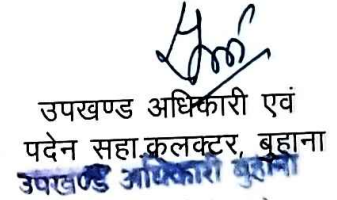 उपखण्ड अधिकारी एवं
पदेन सहा.कलक्टर, बुहाना
उपखण्ड अधिकारी बुहाना